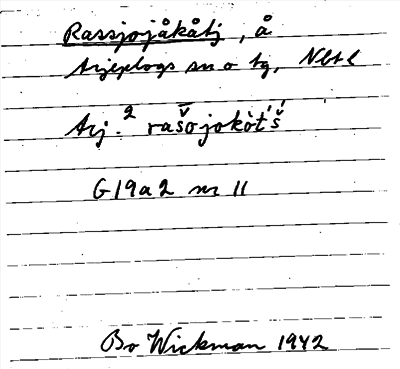 Rassjojåkåtj, å
Arjeplogs sn o tg, Nbtl
Arj.² rašo̅jokòt́š́
G19a2 nr 11
Bo Wickman 1942